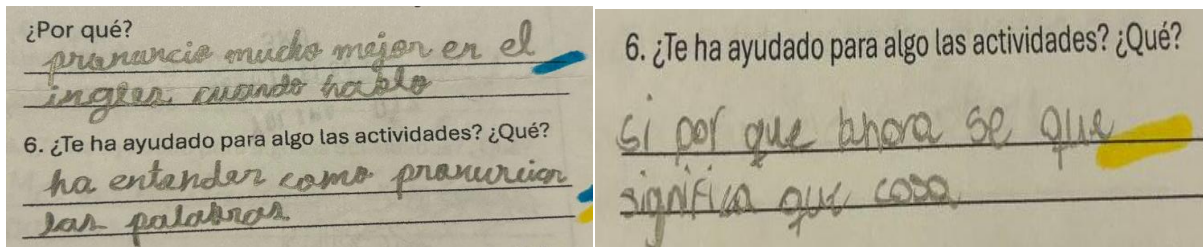 ¿Por qué?
pronuncio mucho mejor en el
ingles cuando hablo
6. ¿Te ha ayudado para algo las actividades? ¿Qué?
ha entender como pronuncian
las palabras
6. ¿Te ha ayudado para algo las actividades? ¿Qué?
si por que ahora se que
significa que cosa